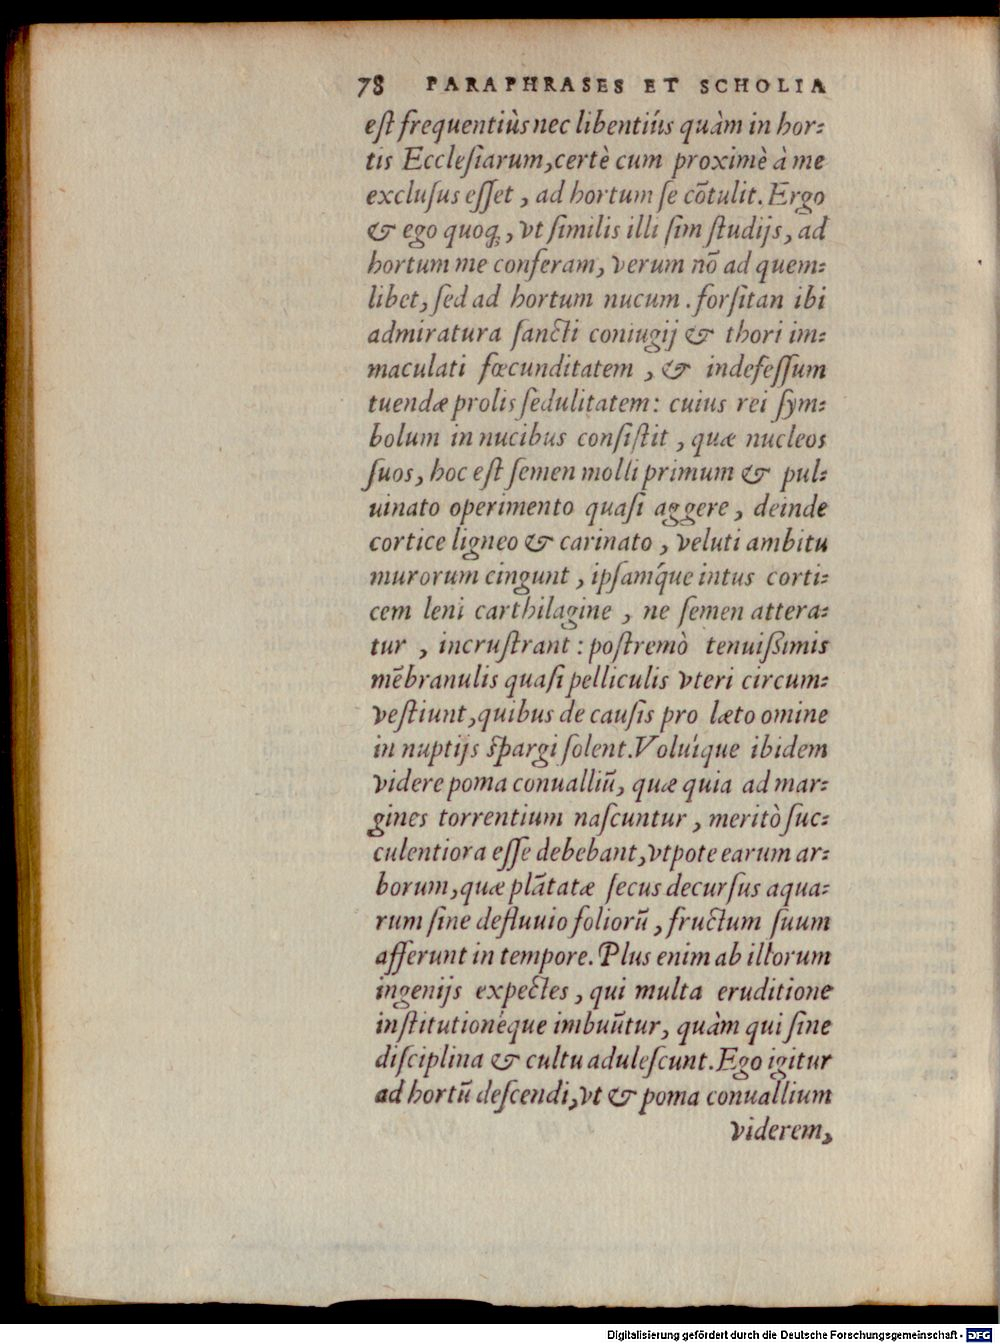 78 PARAPHRASES ET SCHOLIA
eſt frequentiùs nec libentiùs quàm in hor-
tis Eccleſiarum, certè cum proximè à me
excluſus eſſet, ad hortum ſe cōtulit. Ergo
& ego quoq;, vt ſimilis illi ſim ſtudijs, ad
hortum me conferam, verum nō ad quem-
libet, ſed ad hortum nucum. forſitan ibi
admiratura ſancti coniugij & thori im-
maculati fœcunditatem, & indefeſſum
tuendæ prolis ſedulitatem: cuius rei ſym-
bolum in nucibus conſiſtit, quæ nucleos
ſuos, hoc eſt ſemen molli primum & pul-
uinato operimento quaſi aggere, deinde
cortice ligneo & carinato, veluti ambitu
murorum cingunt, ipſaḿque intus corti-
cem leni carthilagine, ne ſemen attera-
tur, incruſtrant: poſtremò tenuißimis
mēbranulis quaſi pelliculis vteri circum-
veſtiunt, quibus de cauſis pro læto omine
in nuptijs ſpargi ſolent. Voluíque ibidem
videre poma conualliū, quæ quia ad mar-
gines torrentium naſcuntur, meritò ſuc-
culentiora eſſe debebant, vtpote earum ar-
borum, quæ plātatæ ſecus decurſus aqua-
rum ſine defluuio foliorū, fructum ſuum
afferunt in tempore. Plus enim ab illorum
ingenijs expectes, qui multa eruditione
inſtitutionéque imbuūtur, quàm qui ſine
diſciplina & cultu aduleſcunt. Ego igitur
ad hortū deſcendi, vt & poma conuallium
viderem,
Digitalisierung gefördert durch die Deutsche Forschungsgemeinschaft - DFG